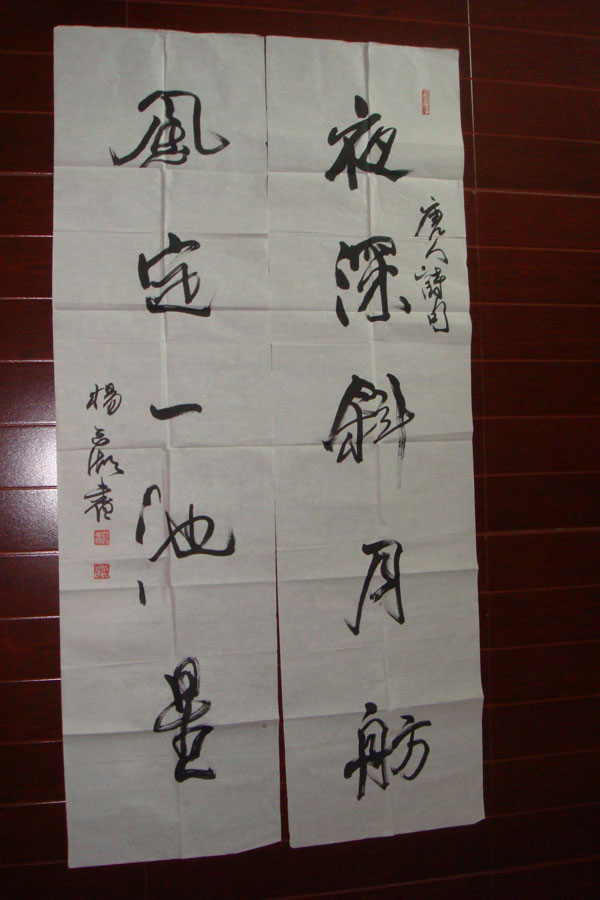 唐人詩句
夜深斜月舫
風定一池星
楊 書